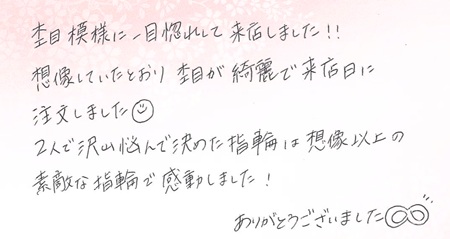 杢目模様に一目惚れして来店しました!!
想像していたとおり杢目が綺麗で来店日に
注文しました☺
2人で沢山悩んで決めた指輪は想像以上の
素敵な指輪で感動しました!
ありがとうございました